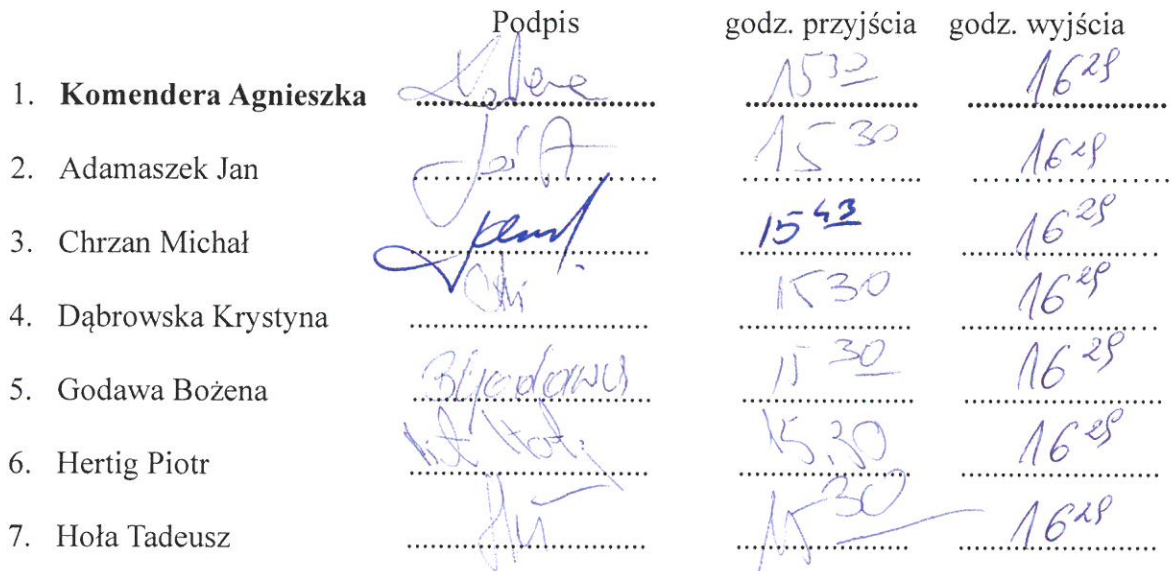 Podpis godz. przyjścia godz. wyjścia
1. Komendera Agnieszka 15 30 16 29
2. Adamaszek Jan 15 30 16 29
3. Chrzan Michał 15 43 16 29
4. Dąbrowska Krystyna 15 30 16 29
5. Godawa Bożena 15 30 16 29
6. Hertig Piotr 15.30 16 29
7. Hoła Tadeusz 15 30 16 29